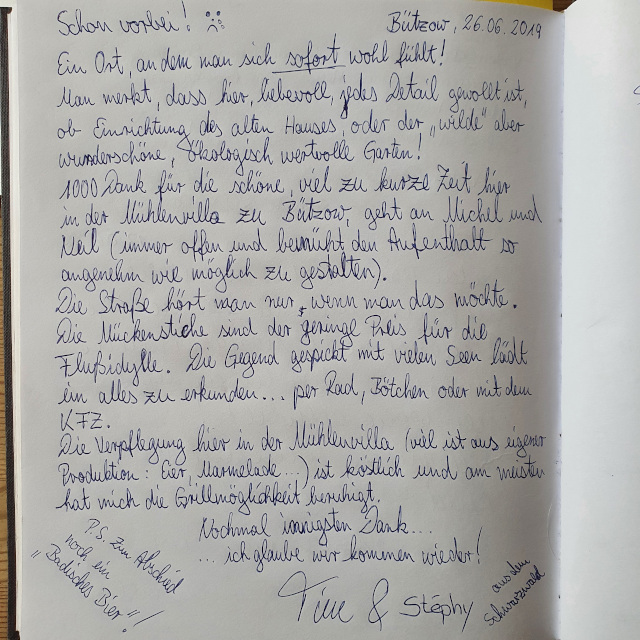 Schon vorbei!
Bützow, 26.06.2019
Ein Ort, an dem man sich sofort wohl fühlt!
Man merkt, dass hier, liebevoll, jedes Detail gewollt ist,
ob Einrichtung des alten Hauses, oder der „wilde" aber
wunderschöne, ökologisch wertvolle Garten!
1000 Dank für die schöne, viel zu kurze Zeit hier
in der Mühlenvilla zu Bützow, geht an Michel und
Neil (immer offen und bemüht den Aufenthalt so
angenehm wie möglich zu gestalten).
Die Straße hört man nur, wenn man das möchte.
Die Mückenstiche sind der geringe Preis für die
Flußidylle. Die Gegend gespickt mit vielen Seen lädt
ein alles zu erkunden... per Rad, Bötchen oder mit dem
KFZ.
Die Verpflegung hier in der Mühlenvilla (viel ist aus eigener
Produktion: Eier, Marmelade...) ist köstlich und am meisten
hat mich die Grillmöglichkeit beruhigt.
Nochmal innigsten Dank...
... ich glaube wir kommen wieder!
P.S. Zum Abschied
noch ein
„Badisches Bier"!
Tim & Stéphy
aus dem
Schwarzwald